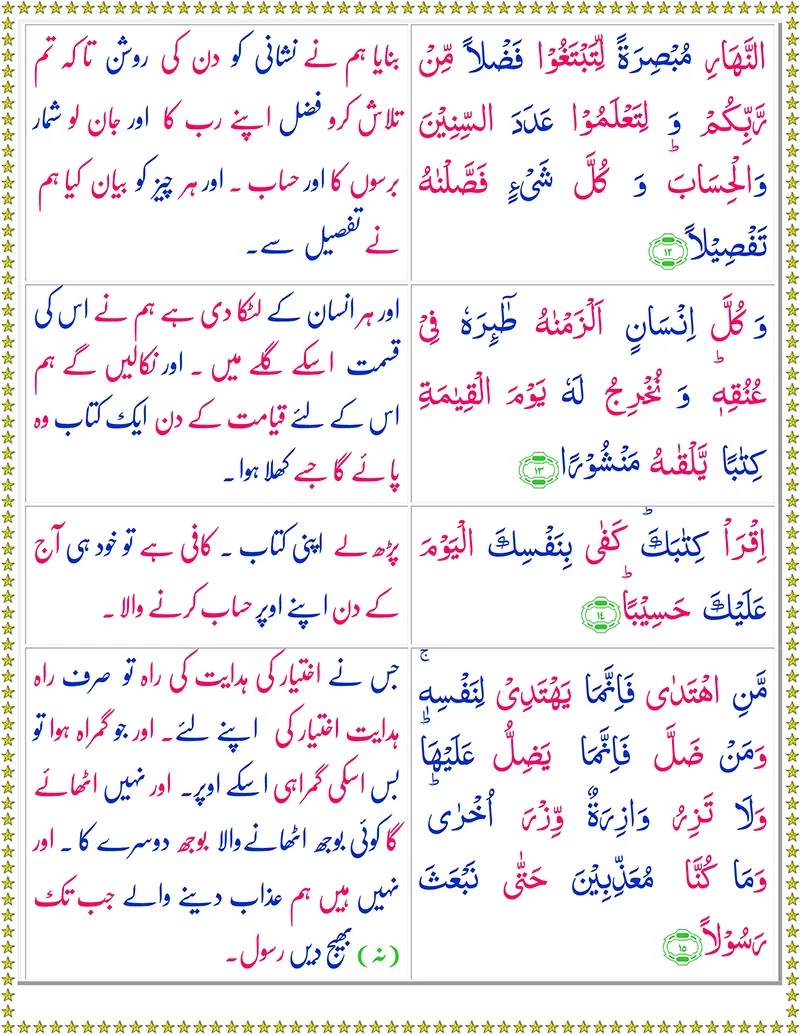 النَّهَارِ مُبْصِرَةً لِّتَبْتَغُوْا فَضْلاً مِّنْ
رَّبِّكُمْ وَ لِتَعْلَمُوْا عَدَدَ السِّنِيْنَ
وَالْحِسَابَ ؕ وَ كُلَّ شَىْءٍ فَصَّلْنٰهُ
تَفْصِيْلاً ۝۱۲
بنایا ہم نے نشانی کو دن کی روشن تاکہ تم
تلاش کرو فضل اپنے رب کا اور جان لو شمار
برسوں کا اور حساب ۔ اور ہر چیز کو بیان کیا ہم
نے تفصیل سے۔
وَ كُلَّ اِنْسَانٍ اَلْزَمْنٰهُ طٰٓئِرَهٗ فِىْ
عُنُقِهٖ ؕ وَ نُخْرِجُ لَهٗ يَوْمَ الْقِيٰمَةِ
كِتٰبًا يَّلْقٰىهُ مَنْشُوْرًا ۝۱۳
اور ہر انسان کے لٹکا دی ہے ہم نے اس کی
قسمت اسکے گلے میں ۔ اور نکالیں گے ہم
اس کے لئے قیامت کے دن ایک کتاب وہ
پائے گا جسے کھلا ہوا ۔
اِقْرَاْ كِتٰبَكَ ؕ كَفٰى بِنَفْسِكَ الْيَوْمَ
عَلَيْكَ حَسِيْبًا ؕ ۝۱٤
پڑھ لے اپنی کتاب ۔ کافی ہے تو خود ہی آج
کے دن اپنے اوپر حساب کرنے والا ۔
مَّنِ اهْتَدٰى فَاِنَّمَا يَهْتَدِىْ لِنَفْسِهٖ ۚ
وَمَنْ ضَلَّ فَاِنَّمَا يَضِلُّ عَلَيْهَا ؕ
وَلَا تَزِرُ وَازِرَةٌ وِّزْرَ اُخْرٰى ؕ
وَمَا كُنَّا مُعَذِّبِيْنَ حَتّٰى نَبْعَثَ
رَسُوْلاً ۝۱۵
جس نے اختیار کی ہدایت کی راہ تو صرف راہ
ہدایت اختیار کی اپنے لئے۔ اور جو گمراہ ہوا تو
بس اسکی گمراہی اسکے اوپر۔ اور نہیں اٹھائے
گا کوئی بوجھ اٹھانے والا بوجھ دوسرے کا ۔ اور
نہیں ہیں ہم عذاب دینے والے جب تک
(نہ) بھیج دیں رسول۔